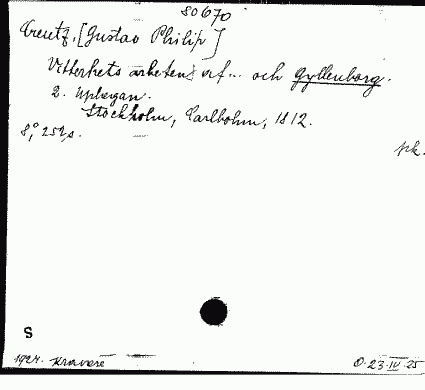 80670
Creutz, [Gustav Philip]
Vitterhets arbeten af... och Gyllenborg.
2. Uplagan.
Stockholm, Carlbohm, 1812.
8,° 252 s.
pk.
S
1924. Kravaře
O. 23. IV. 25